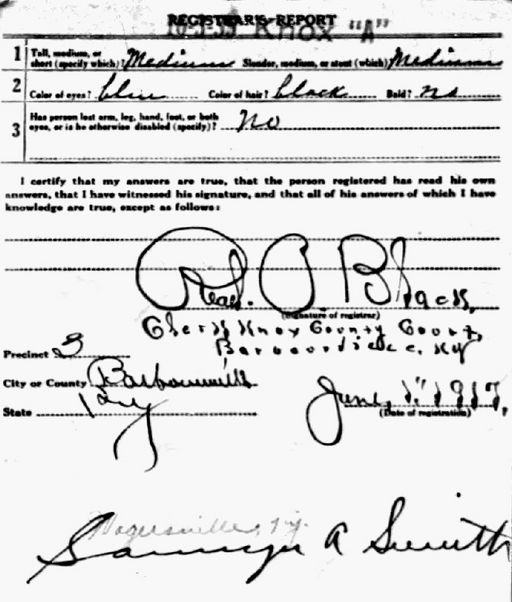 REGISTRAR'S REPORT
Knox "A"
1 Tall, medium, or short (specify which)? Medium Slender, medium, or stout (which)? Medium
2 Color of eyes? blue Color of hair? black Bald? no
3 Has person lost arm, leg, hand, foot, or both
eyes, or is he otherwise disabled (specify)? No
I certify that my answers are true, that the person registered has read his own
answers, that I have witnessed his signature, and that all of his answers of which I have
knowledge are true, except as follows:
Read. A Black,
(Signature of registrar)
Clerk Knox County Court,
Barbourville, Ky
Precinct 3
City or County Barbourville
State Ky
June, 1" 1917,
(Date of registration)
A Smith